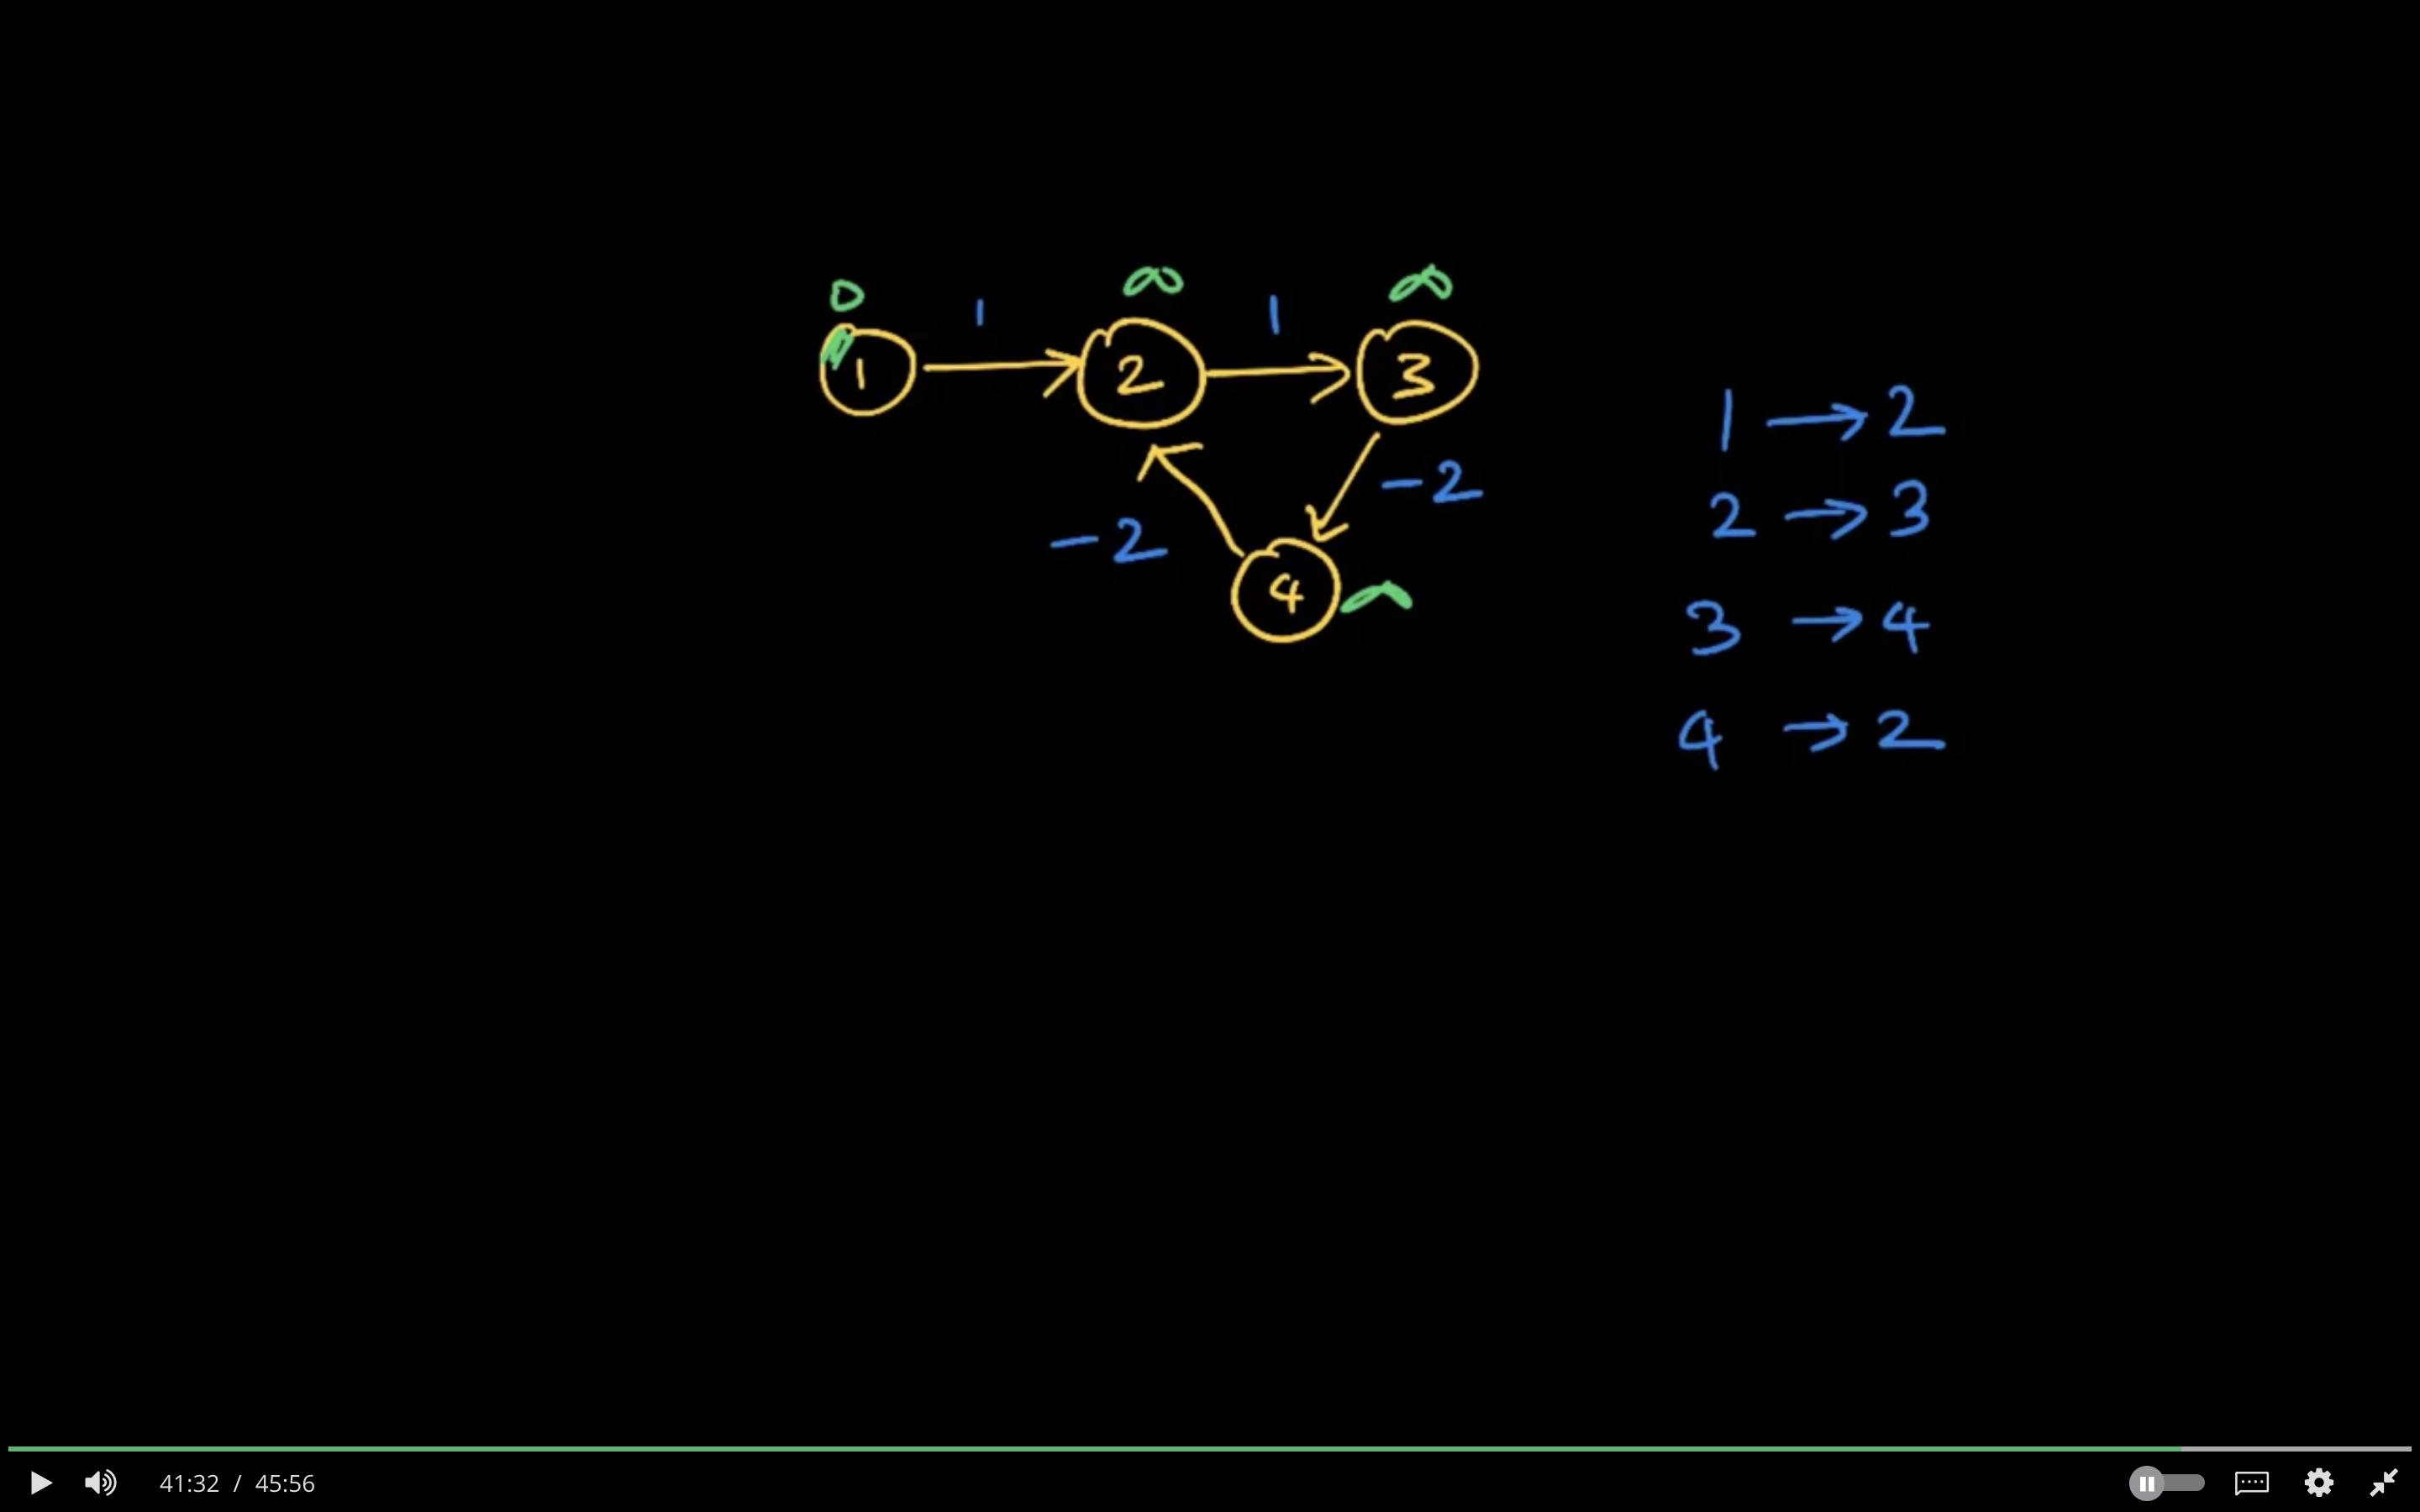 0 1 ∞ 1 ∞
1 2 3
1 → 2
-2
2 → 3
-2
4 ∞
3 → 4
4 → 2
41:32 / 45:56